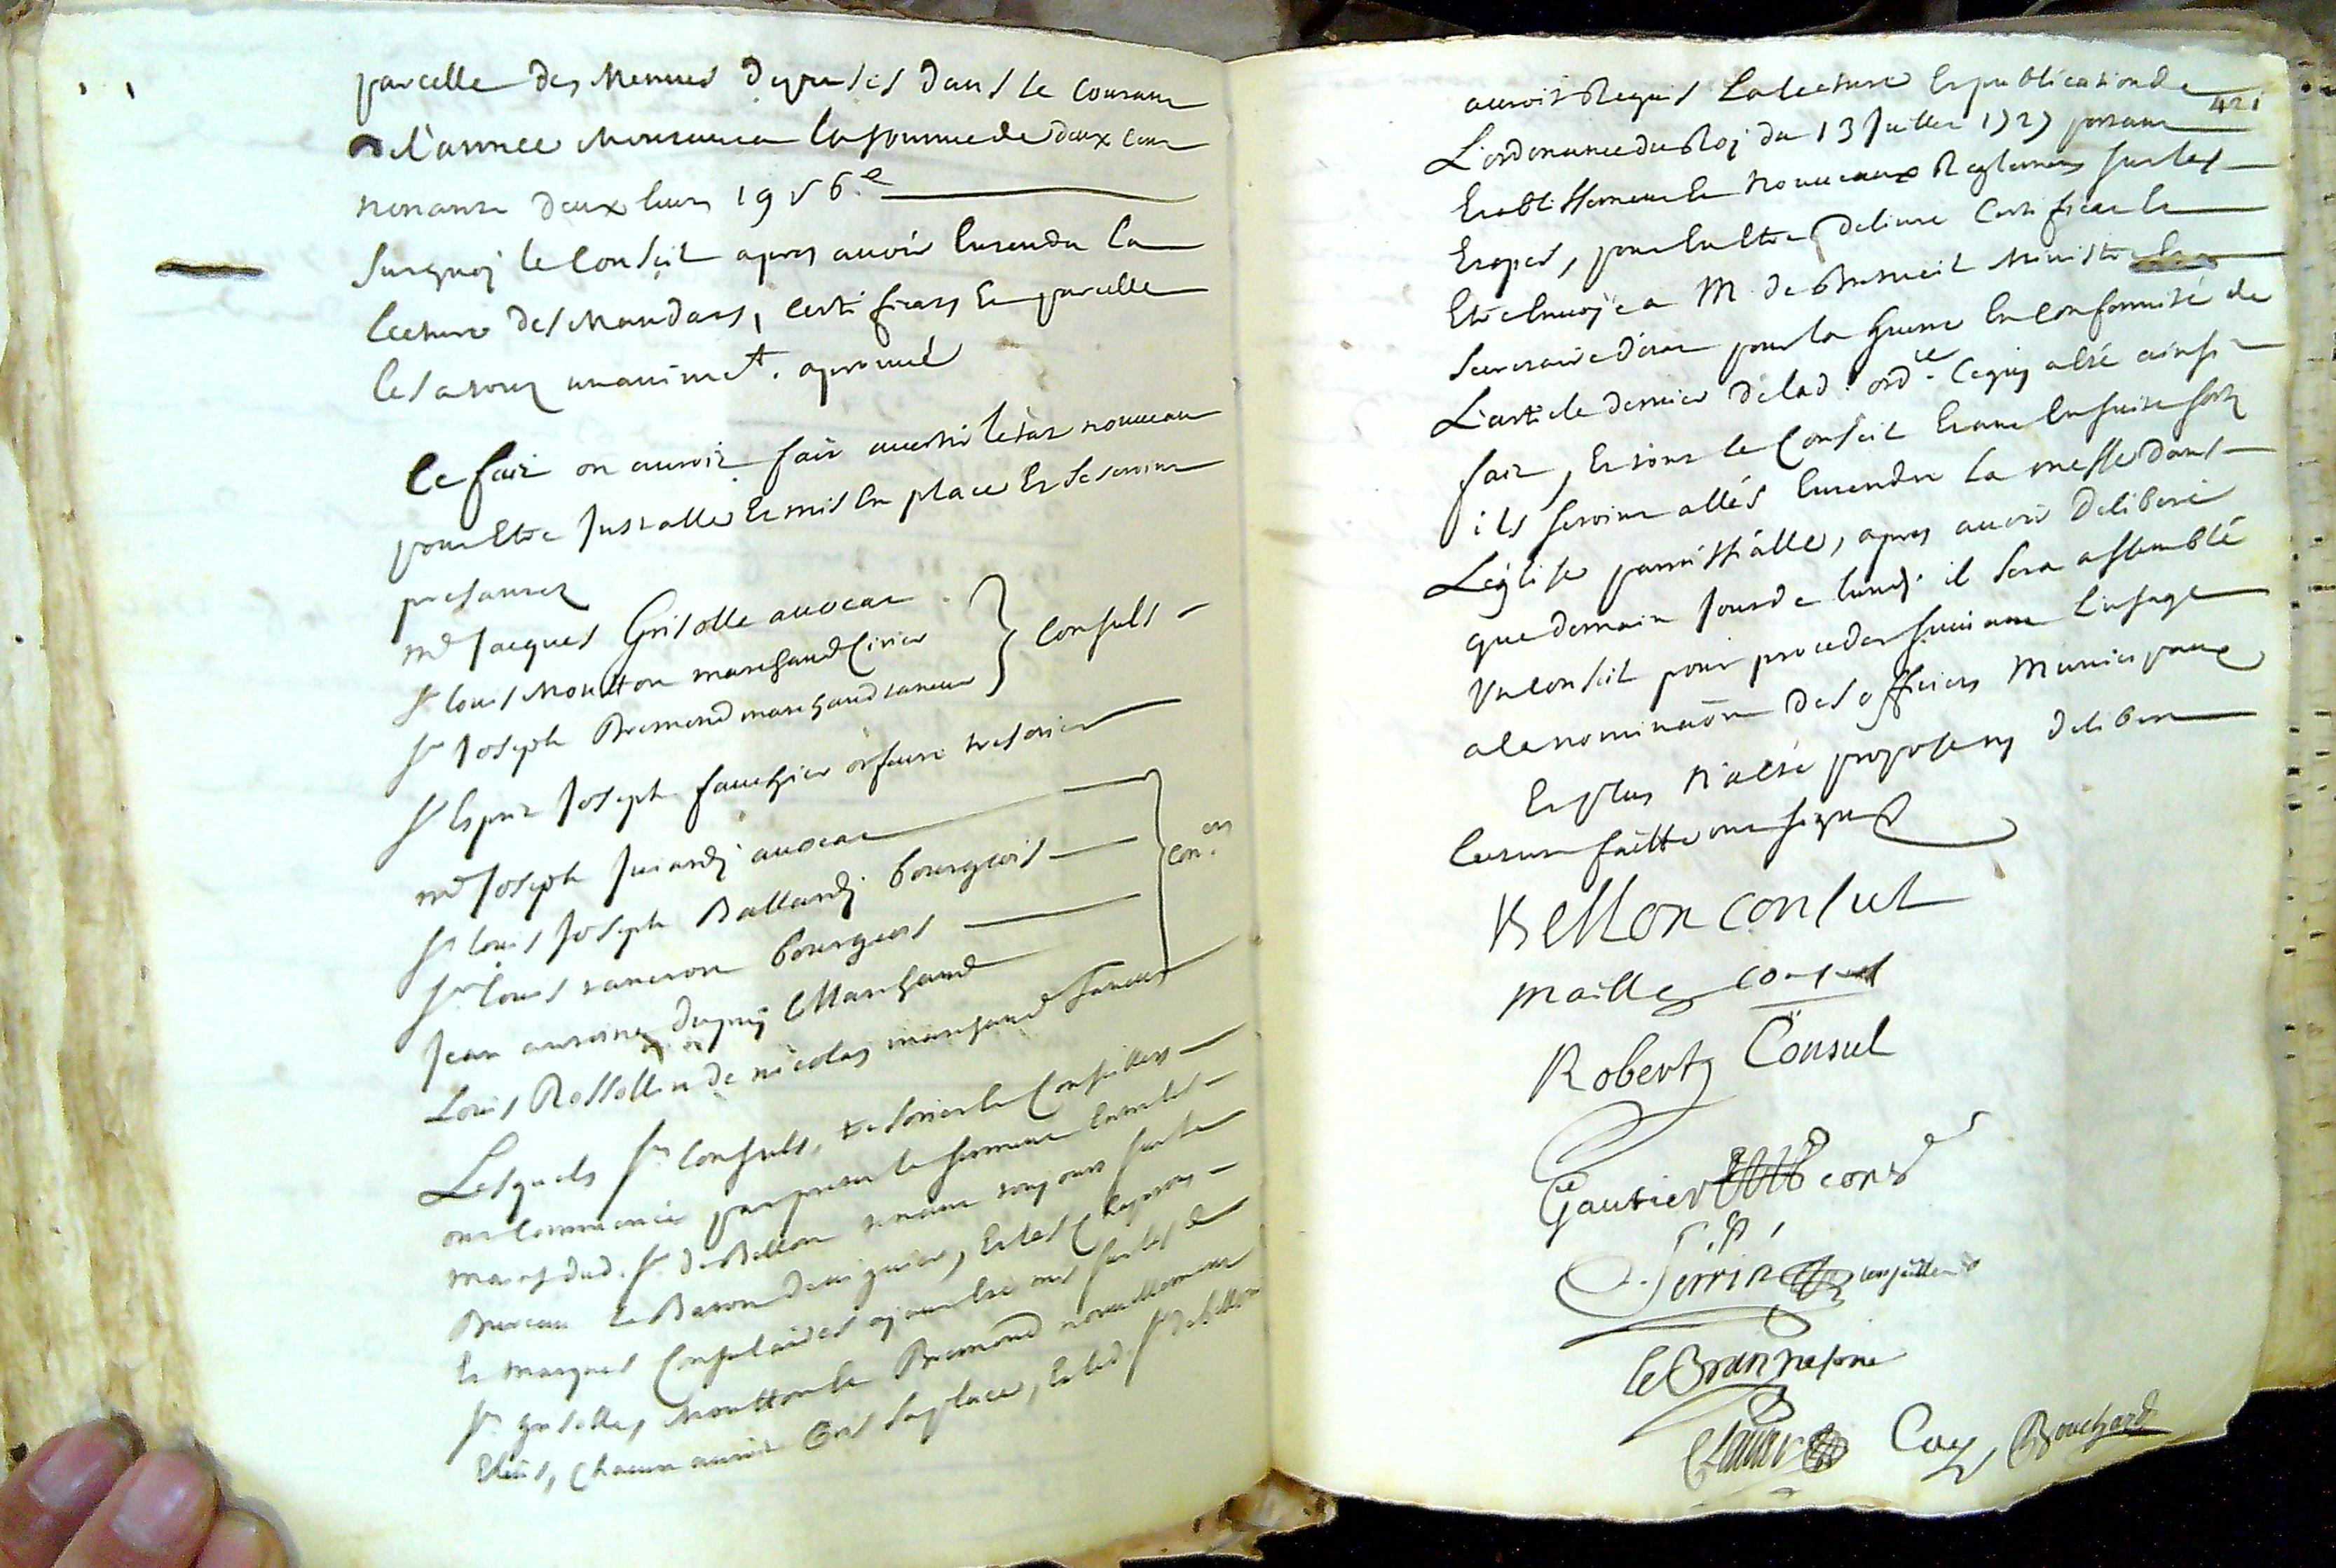 parcelle des Menues depenses dans le Courant
de l'année Montant en la somme de deux cent
nonante deux livres 19 s 6 .d
Surquoj le Conseil apres avoir Entendu la
lecture des Mandats, certificats Et parcelle
les a tous unanimet. aprouvé
Ce fait on auroit fait avertir l'etat nouveau
pour Etre Jnstallé Et mis En place Et se seroint
presantez
Me Jacques Grisolle avocat
Sr louis Moutton marchand Cirier
Sr Joseph Bremond marchand taneur
Consuls
Sr Esprit Joseph fauchier orfevre tresorier
Me Joseph Juiardj avocat
Sr louis Joseph Ballardj bourgeois
Sr louis taneron bourgeois
Jean antoine Dupuj Marchand
Louis Rossollin de nicolas marchand taneur
Con.ers
Lesquels Srs Consuls, tresorier Et Conseillers
ont Commencé par preter le serment Entre les
mains dud. Sr. de Bellon tenant toujours sur le
Bureau Le Baton de viguier, Et les Chaperons
Et marques Consulaires ayant Eté mis sur les d.
Srs grisolle, Moutton Et Bremond nouvellement
Elûs, Chacun auroit Pris sa place, Et led. Sr de bellon
421
auroit Requis La lecture Et publication de
L'ordonnance du Roj du 13 Juillet 1727 portant
Etablissement de nouveaux Reglemens sur les
Etapes, pour En Etre Delivré Certificat Et
Etre Envoyé a M. de Breteuil Ministre
Secretaire d'état pour la Guerre En Conformité de
L'article dernier de lad. ordce. Ce qui a Eté ainsi
fait, Et tout le Conseil Etant Ensuite sorti
ils seroint allés Entendre la messe dans
L'église parroissialle, apres avoir Deliberé
que demain Jour de lundj il sera assemblé
Un Conseil pour proceder suivant l'usage
a la nomination des officiers Municipaux
Et plus n'a Eté proposé nj deliberé
lecture faitte ont signé
Bellon consul
Maille consul
Roberty Consul
Gautier cons.r
Perrin conseiller
le Brun tresorier
Cay Bouchard